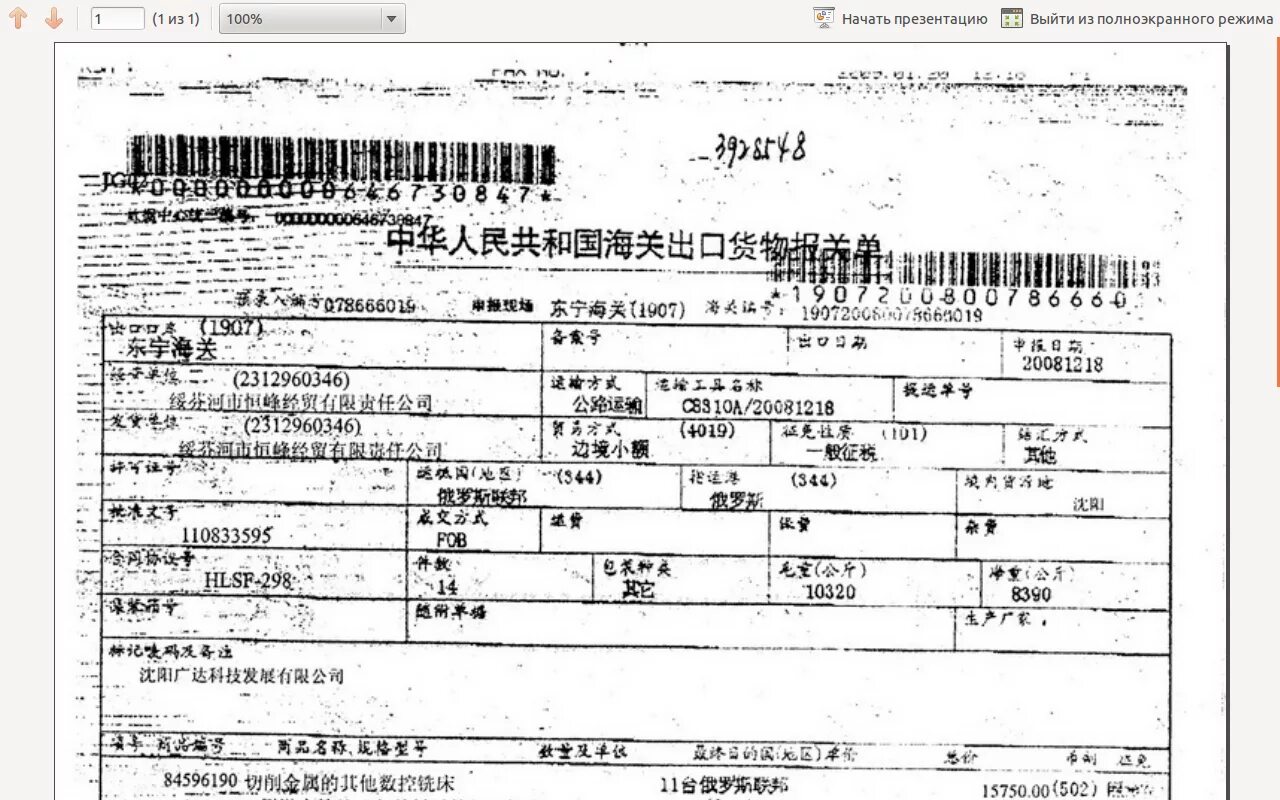 1 (1 из 1) 100% Начать презентацию Выйти из полноэкранного режима
3928548
*0000000000646730847*
000000000646730847
中华人民共和国海关出口货物报关单
078666019 申报现场 东宁海关(1907) 海关编号:
出口口岸 (1907) 备案号 出口日期 申报日期
东宁海关 20081218
经营单位 (2312960346) 运输方式 运输工具名称 提运单号
绥芬河市恒峰经贸有限责任公司 公路运输 C8310A/20081218
发货单位 (2312960346) 贸易方式 (4019) 征免性质 (101) 结汇方式
绥芬河市恒峰经贸有限责任公司 边境小额 一般征税 其他
许可证号 运抵国(地区) (344) 指运港 (344) 境内货源地
俄罗斯联邦 俄罗斯 沈阳
批准文号 成交方式 运费 保费 杂费
110833595 FOB
合同协议号 件数 包装种类 毛重(公斤) 净重(公斤)
HLSF-298 14 其它 10320 8390
集装箱号 随附单据 生产厂家
标记唛码及备注
沈阳广达科技发展有限公司
项号 商品编号 商品名称、规格型号 数量及单位 最终目的国(地区)单价 总价 币制 征免
84596190 切削金属的其他数控铣床 11台俄罗斯联邦 15750.00(502)